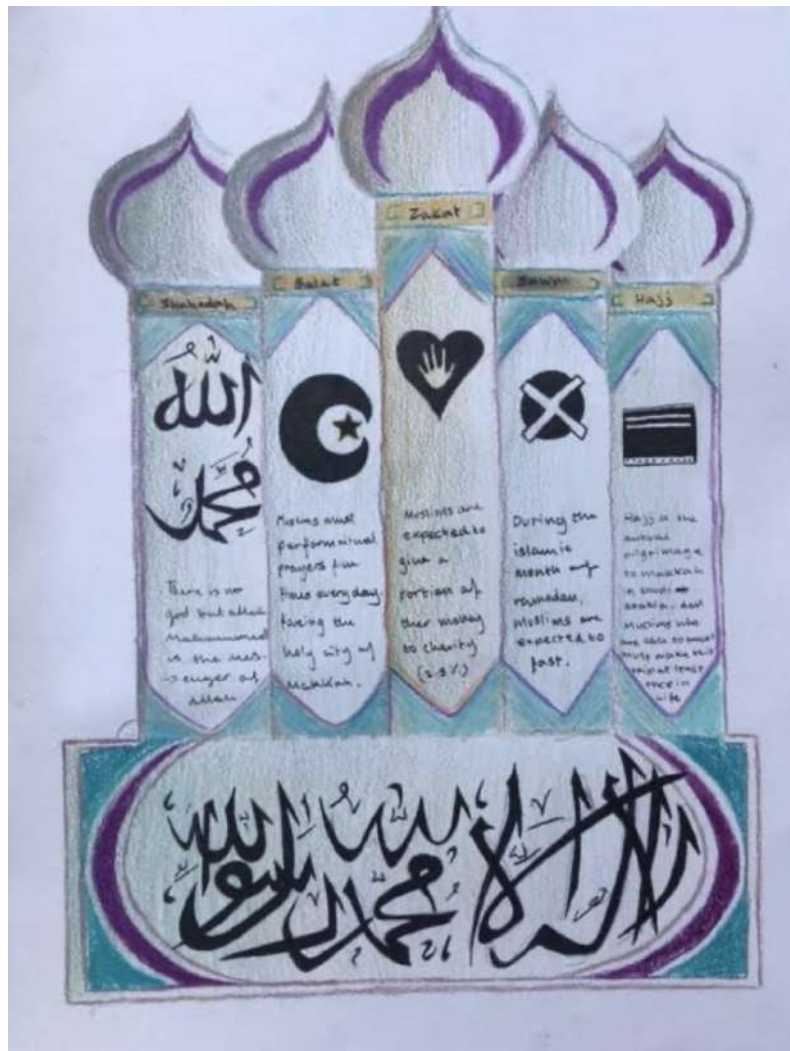 Shahadah
الله
محمد
There is no
god but allah
Muhammed
is the mes-
senger of
Allah
Salat
Muslims must
perform ritual
prayers five
times everyday.
facing the
holy city of
Makkah.
Zakat
Muslims are
expected to
give a
portion of
ther money
to charity
(2.5%)
Sawm
During the
islamic
month of
ramadan,
muslims are
expected to
fast.
Hajj
Hajj is the
annual
pilgrimage
to makkah
in saudi
arabia. All
Muslims who
are able to
must make this
trip at least
once in
life
لا اله الا الله محمد رسول الله